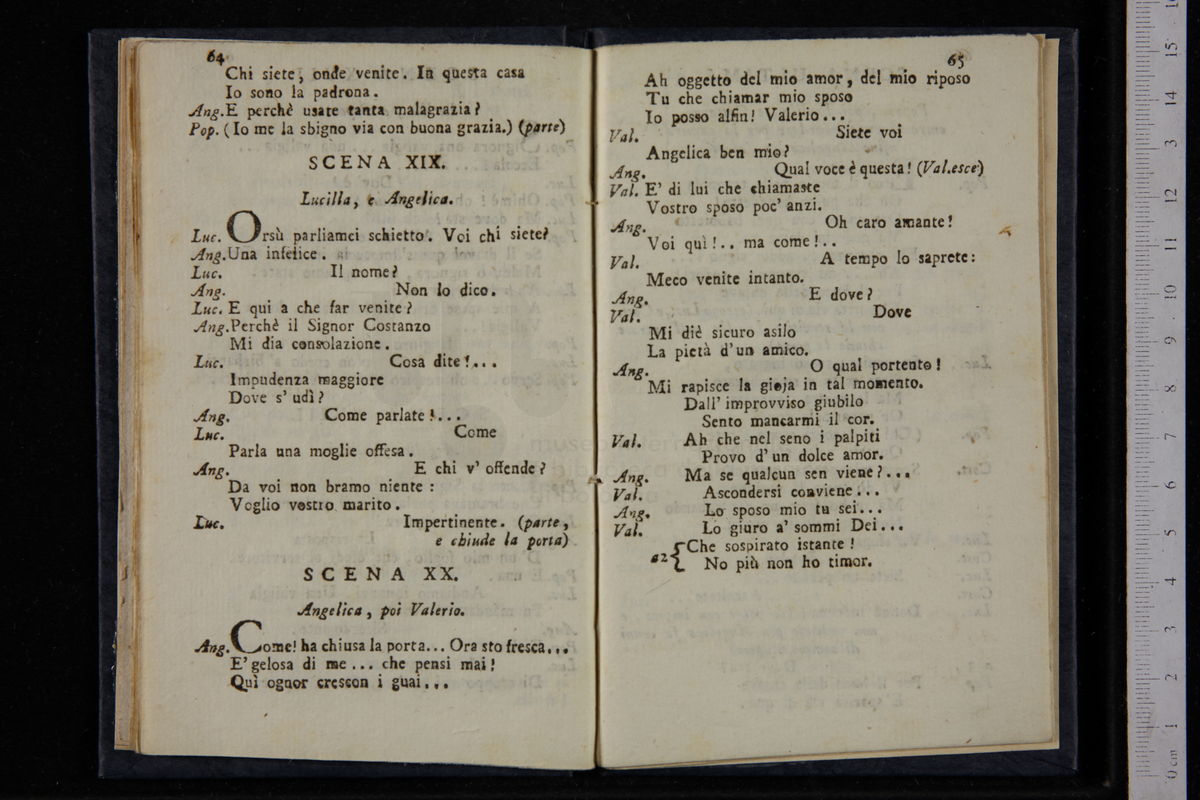 64
Chi siete, onde venite. In questa casa
Io sono la padrona.
Ang. E perchè usate tanta malagrazia?
Pop. (Io me la sbigno via con buona grazia.) (parte)
SCENA XIX.
Lucilla, e Angelica.
Luc. Orsù parliamci schietto. Voi chi siete?
Ang. Una infelice.
Luc. Il nome?
Ang. Non lo dico.
Luc. E qui a che far venite?
Ang. Perchè il Signor Costanzo
Mi dia consolazione.
Luc. Cosa dite!...
Impudenza maggiore
Dove s' udì?
Ang. Come parlate!...
Luc. Come
Parla una moglie offesa.
Ang. E chi v' offende?
Da voi non bramo niente:
Voglio vostro marito.
Luc. Impertinente. (parte,
e chiude la porta)
SCENA XX.
Angelica, poi Valerio.
Ang. Come! ha chiusa la porta... Ora sto fresca...
E' gelosa di me... che pensi mai!
Quì ognor crescon i guai...
65
Ah oggetto del mio amor, del mio riposo
Tu che chiamar mio sposo
Io posso alfin! Valerio...
Val. Siete voi
Angelica ben mio?
Ang. Qual voce è questa! (Val. esce)
Val. E' di lui che chiamaste
Vostro sposo poc' anzi.
Ang. Oh caro amante!
Voi quì!.. ma come!..
Val. A tempo lo saprete:
Meco venite intanto.
Ang. E dove?
Val. Dove
Mi diè sicuro asilo
La pietà d' un amico.
Ang. O qual portento!
Mi rapisce la gioja in tal momento.
Dall' improvviso giubilo
Sento mancarmi il cor.
Val. Ah che nel seno i palpiti
Provo d' un dolce amor.
Ang. Ma se qualcun sen viene?...
Val. Ascondersi conviene...
Ang. Lo sposo mio tu sei...
Val. Lo giuro a' sommi Dei...
a 2 { Che sospirato istante!
No più non ho timor.